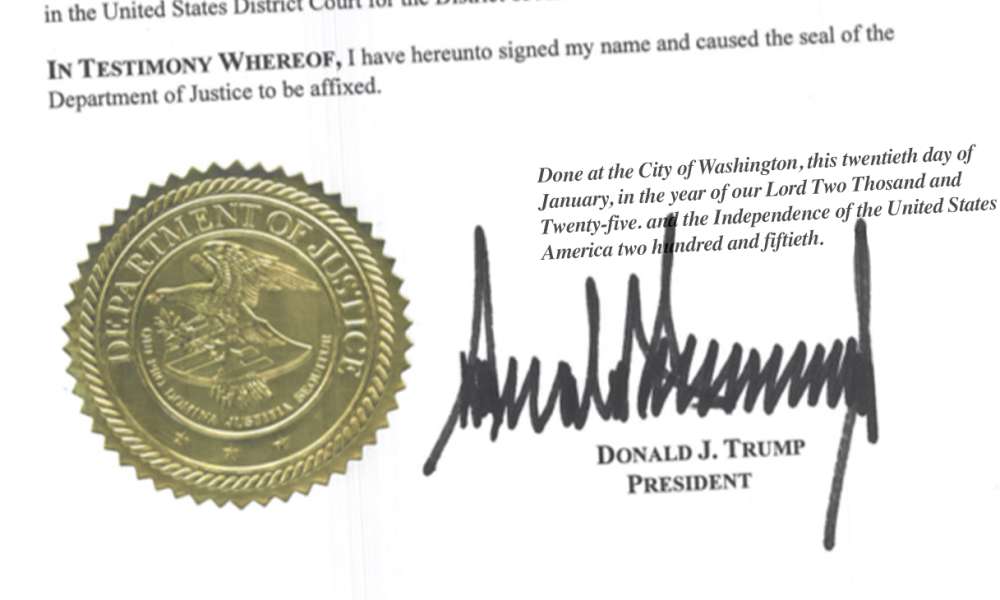 in the United States District Court for the District of
IN TESTIMONY WHEREOF, I have hereunto signed my name and caused the seal of the
Department of Justice to be affixed.
Done at the City of Washington, this twentieth day of
January, in the year of our Lord Two Thosand and
Twenty-five. and the Independence of the United States
America two hundred and fiftieth.
DEPARTMENT OF JUSTICE
QUI PRO DOMINA JUSTITIA SEQUITUR
DONALD J. TRUMP
PRESIDENT